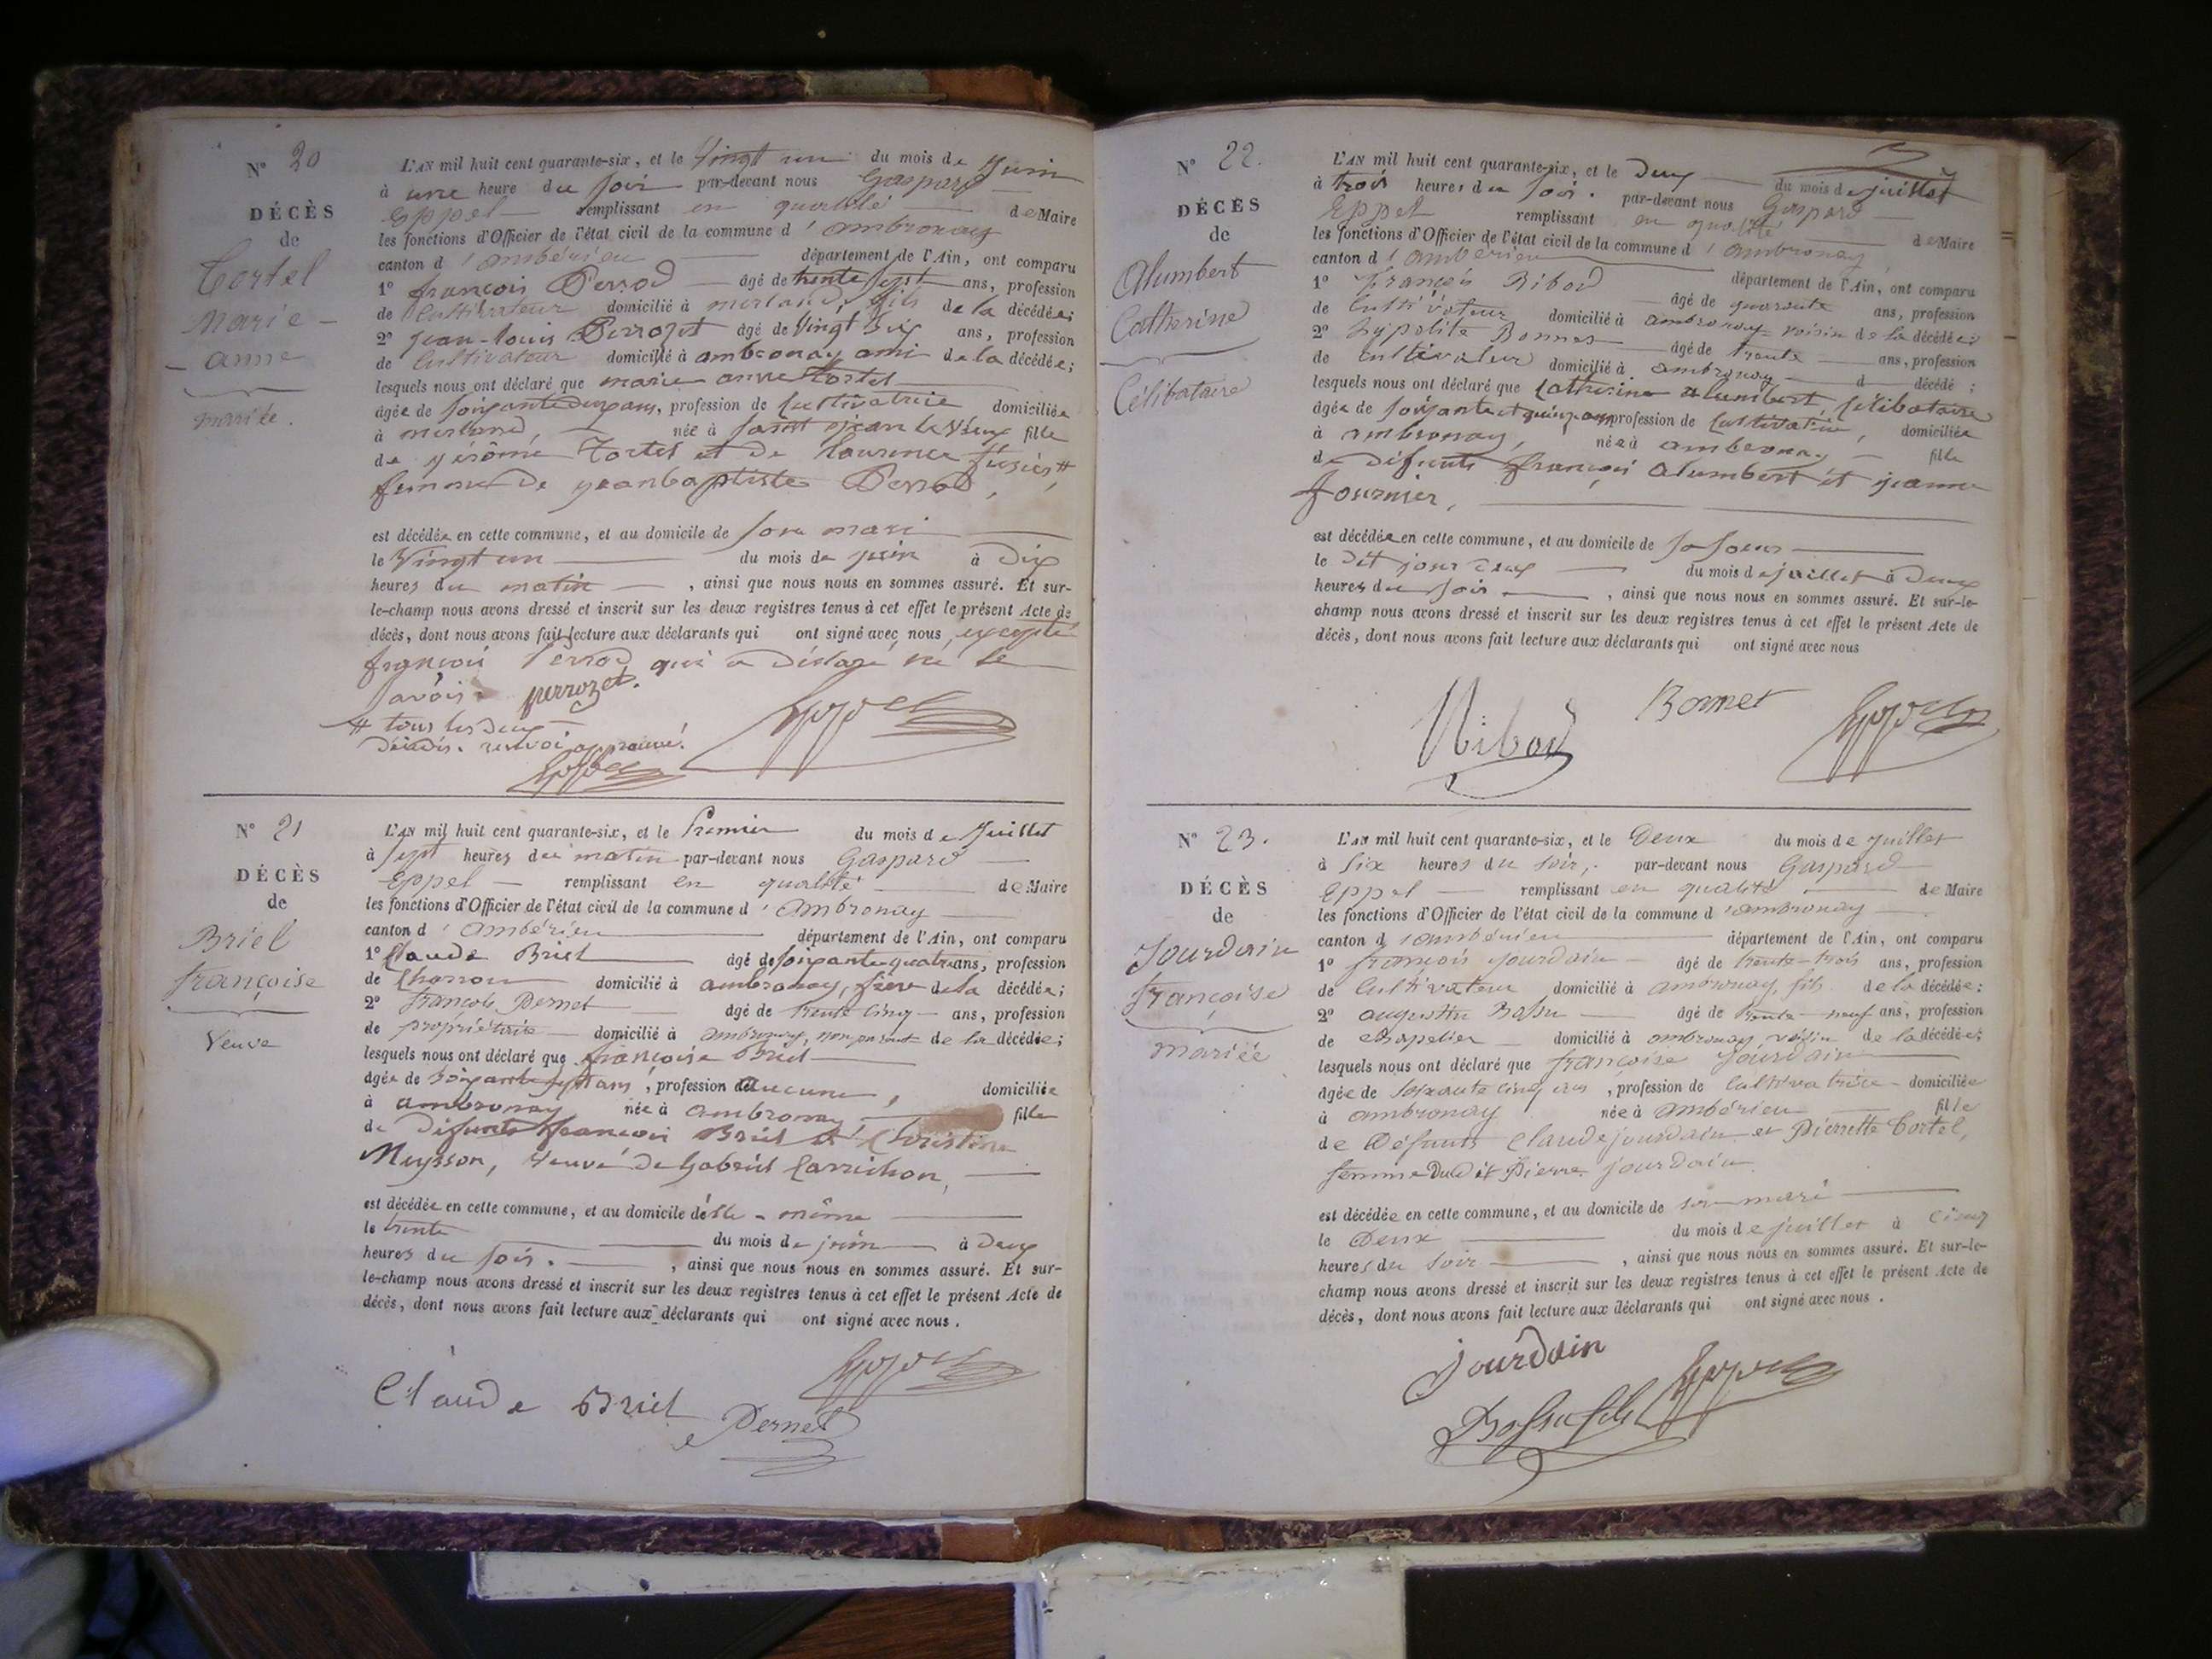 N° 20
DÉCÈS
de
Tortel
Marie-
anne
mariée.
L'AN mil huit cent quarante-six, et le Vingt un du mois de Juin
à une heure du soir par-devant nous Gaspard
Eppel remplissant en qualité de Maire
les fonctions d'Officier de l'état civil de la commune d'ambronay
canton d'ambérieu département de l'Ain, ont comparu
1° françois Perrod âgé de trente sept ans, profession
de Cultivateur domicilié à merland, fils de la décédée;
2° jean-louis Perrozet âgé de Vingt six ans, profession
de Cultivateur domicilié à ambronay ami de la décédée;
lesquels nous ont déclaré que marie anne tortel
âgée de soixante deux ans, profession de Cultivatrice domiciliée
à merland, née à saint jean le Vieux fille
de gérome Tortel et de laurence #
femme de jean baptiste Perrod,
est décédée en cette commune, et au domicile de son mari
le Vingt un du mois de juin à Dix
heures du matin, ainsi que nous nous en sommes assuré. Et sur-
le-champ nous avons dressé et inscrit sur les deux registres tenus à cet effet le présent Acte de
décès, dont nous avons fait lecture aux déclarants qui ont signé avec nous, excepté
françois Perrod qui a déclaré ne le
savoir. perrozet.
# tous les deux
décédés. renvoi approuvé.
Eppel
Eppel
N° 21
DÉCÈS
de
Briel
françoise
Veuve
L'AN mil huit cent quarante-six, et le Premier du mois de Juillet
à sept heures du matin par-devant nous Gaspard
Eppel remplissant en qualité de Maire
les fonctions d'Officier de l'état civil de la commune d'ambronay
canton d'ambérieu département de l'Ain, ont comparu
1° Claude Briel âgé de soixante quatre ans, profession
de Charron domicilié à ambronay, frère de la décédée;
2° françois Pernet âgé de trente cinq ans, profession
de propriétaire domicilié à ambronay, non parent de la décédée;
lesquels nous ont déclaré que françoise Briel
âgée de soixante sept ans, profession de aucune, domiciliée
à ambronay née à ambronay fille
de défunts françois Briel et Christine
Meysson, Veuve de Gabriel Carrichon,
est décédée en cette commune, et au domicile d'elle-même
le trente du mois de juin à Deux
heures du soir., ainsi que nous nous en sommes assuré. Et sur-
le-champ nous avons dressé et inscrit sur les deux registres tenus à cet effet le présent Acte de
décès, dont nous avons fait lecture aux déclarants qui ont signé avec nous.
Eppel
Claude Briel Pernet
N° 22.
DÉCÈS
de
Alumbert
Catherine
Célibataire
L'AN mil huit cent quarante-six, et le Deux du mois de juillet
à trois heures du soir. par-devant nous Gaspard
Eppel remplissant en qualité de Maire
les fonctions d'Officier de l'état civil de la commune d'ambronay
canton d'ambérieu département de l'Ain, ont comparu
1° françois Ribod âgé de quarante ans, profession
de Cultivateur domicilié à ambronay voisin de la décédée;
2° hypolite Bonnet âgé de trente ans, profession
de cultivateur domicilié à ambronay d décédé ;
lesquels nous ont déclaré que Catherine alumbert, Célibataire
âgée de soixante et quinze ans profession de Cultivatrice, domiciliée
à ambronay, née à ambronay fille
de défunts françois alumbert et jeanne
fournier,
est décédée en cette commune, et au domicile de sa soeur
le dit jour deux du mois de juillet à Deux
heures du soir, ainsi que nous nous en sommes assuré. Et sur-le-
champ nous avons dressé et inscrit sur les deux registres tenus à cet effet le présent Acte de
décès, dont nous avons fait lecture aux déclarants qui ont signé avec nous
Ribod Bonnet Eppel
N° 23.
DÉCÈS
de
Jourdain
françoise
mariée
L'AN mil huit cent quarante-six, et le Deux du mois de juillet
à six heures du soir, par-devant nous Gaspard
Eppel remplissant en qualité de Maire
les fonctions d'Officier de l'état civil de la commune d'ambronay
canton d'ambérieu département de l'Ain, ont comparu
1° françois jourdain âgé de trente-trois ans, profession
de Cultivateur domicilié à ambronay, fils de la décédée;
2° augustin Bassu âgé de trente-neuf ans, profession
de chapelier domicilié à ambronay, voisin de la décédée;
lesquels nous ont déclaré que françoise jourdain
âgée de soixante cinq ans, profession de Cultivatrice domiciliée
à ambronay née à ambérieu fille
de Défunts Claude jourdain et Pierrette tortel,
femme dudit Pierre jourdain
est décédée en cette commune, et au domicile de son marri
le Deux du mois de juillet à cinq
heures du soir, ainsi que nous nous en sommes assuré. Et sur-le-
champ nous avons dressé et inscrit sur les deux registres tenus à cet effet le présent Acte de
décès, dont nous avons fait lecture aux déclarants qui ont signé avec nous.
jourdain
Bassu fils Eppel